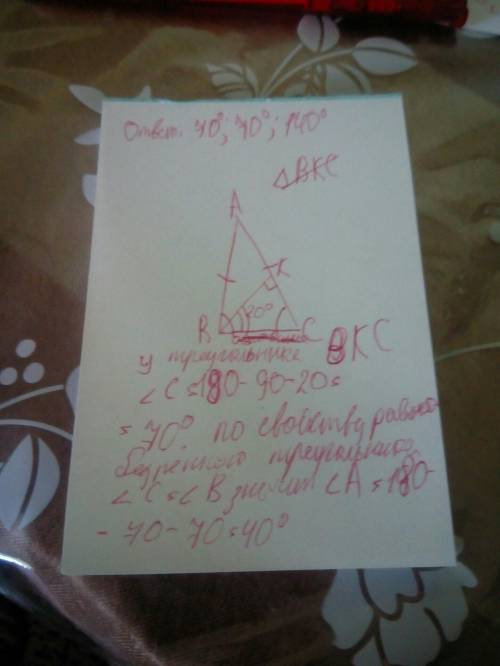 Ответ: 70°; 70°; 140°
△BKC
A
K
20°
B
C
У треугольнике BKC
∠C = 180 - 90 - 20 =
= 70°. по свойству равно
бедренного треугольника
∠C = ∠B значит ∠A = 180 -
- 70 - 70 = 40°